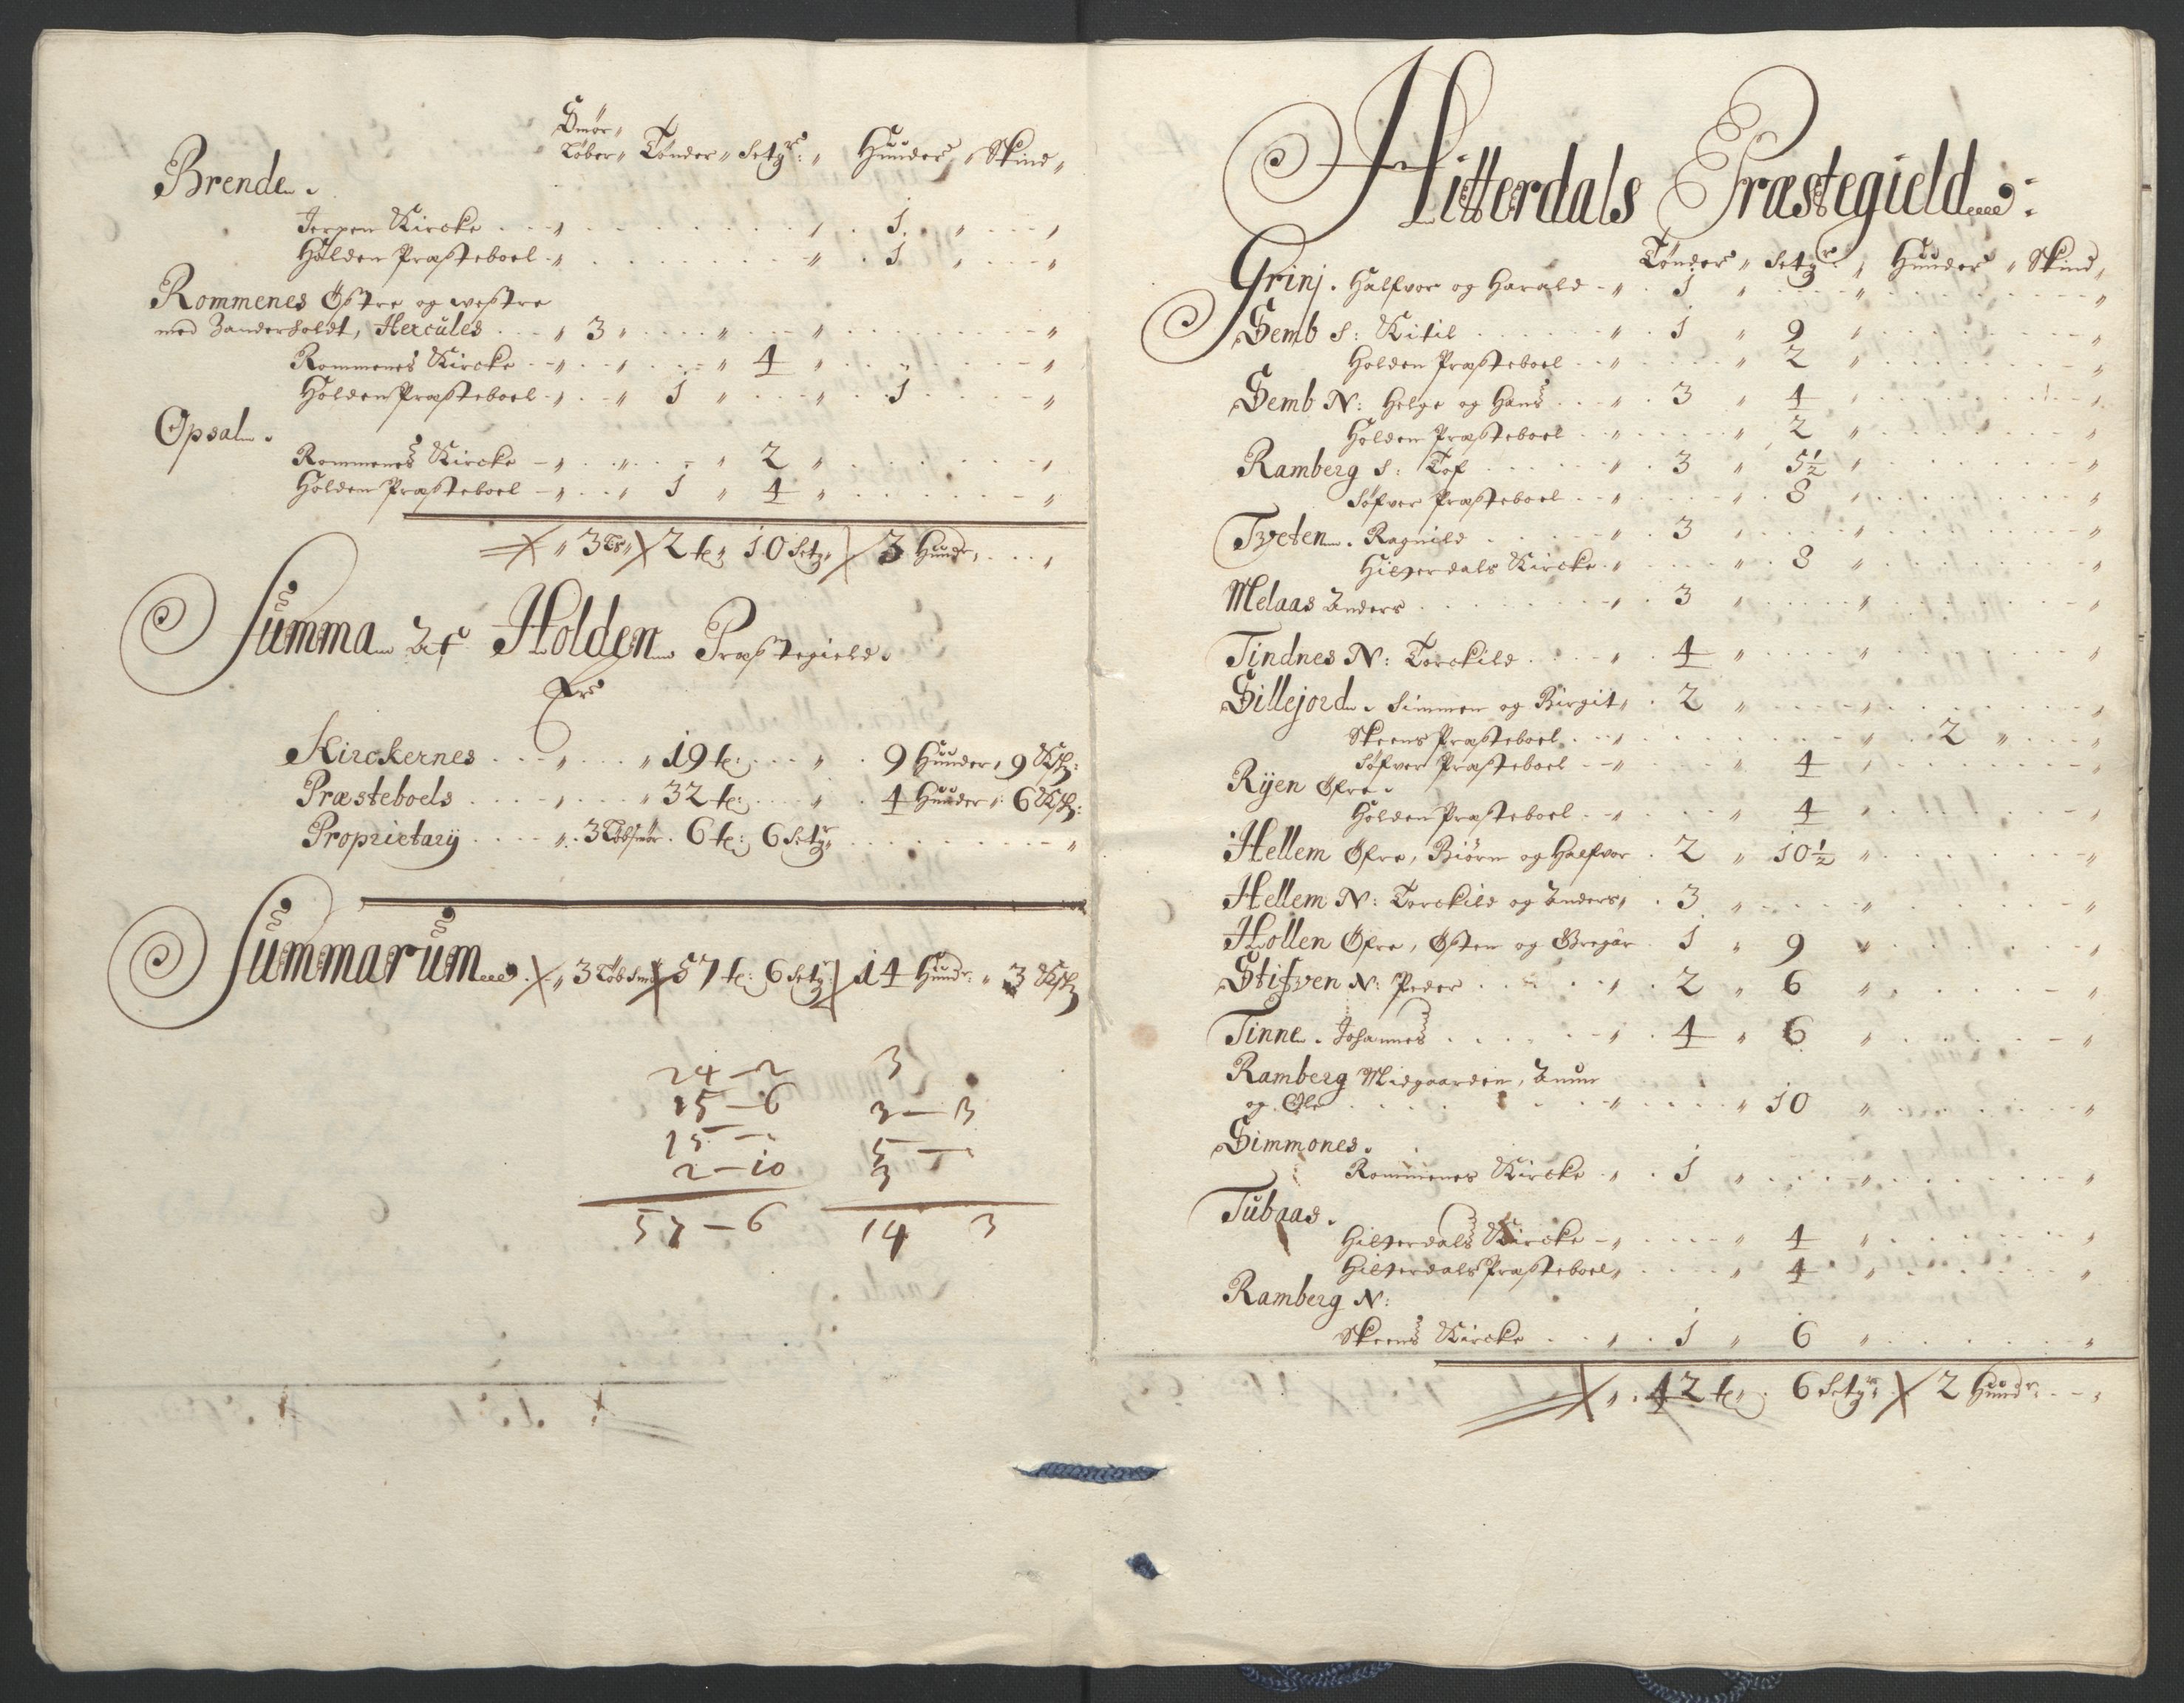 Smör„
Töber„ Tönder„ Setgr: „ Hunder „ Skind„
Brende.
Jerpen Kircke . . . „ . . . „ . 1. „ . . . „
Holden Præsteboel . „ . . . „ . 1 „ . . „
Rommenes Östre og westre
med Zanderholdt, Hercules . . . „ 3 „ . . . „ . . . „ . . . „
Rommenes Kircke . . „ . . „ . . . „ 4 „ . . . „
Holden Præsteboel . „ . . „ 1 „ . . . „ . 1 . . . „
Opsal .
Rommenes Kircke . „ . . „ . . „ 2 „ . . . „
Holden Præsteboel . „ . . „ 1 „ 4 „ . . . „
„ 3 Tb„ 2 te„ 10 Setg„ 3 Hundr„ . . . „
Summa Af Holden Præstegield.
Er
Kirckernes . . . „ . . . „ 19 te: . . . „ . 9 Hunder„ 9 Ksk:
Præsteboels . . . „ . . . „ 32 te: . . . „ . 4 Hunder„ 6 Ksk:
Proprietarij . . . „ . 3 Töbsmör . 6 te: 6 Setgr„ . . . „
Summarum . „ 3 Töb Smör 57 te: 6 Setgr: 14 Hundr: „ 3 Ksk
24 — 2 3
15 — 6 3 — 3
15 — „ 5 —
2 — 10 3
57 — 6 14 3
Hitterdals Præstegield:
Tönder „ Setgr „ Hunder „ Skind„
Grinj . Halfvor og Harald . „ . 1 „ . . . „ . . . „
Semb S: Kitil . . . „ . 1 „ 9 „ . . . „
Holden Præsteboel . . „ . . . „ 2 „ . . . „
Semb N: Helge og Hans . . „ . 3 „ 4 „ . . . „
Holden Præsteboel . . „ . . . „ 2 „ . . . „
Ramberg S: Tof . . . „ . 3 „ 5½ „ . . . „
Söfver Præsteboel . . „ . . . „ . 8 „ . . . „
Tveten . Ragnild . . . „ . 3 „ . . . „ . . . „
Hitterdals Kircke . „ . . . „ . 8 „ . . . „
Melaas Anders . . . „ . 3 „ . . . „ . . . „
Tindnes N: Torckild . . . „ . 4 „ . . . „ . . . „
Sillejord . Simmen og Birgit „ . 2 „ . . . „ . . . „
Skeens Præsteboel . . „ . . . „ . 2 „ . . . „
Söfver Præsteboel . . „ . . . „ 4 „ . . . „
Rijen Öfre.
Holden Præsteboel . . „ . . . „ 4 „ . . . „
Hellem Öfre, Biörn og Halfvor . 2 „ 10½ „ . . . „
Hellem N: Torckild og Anders „ . 3 „ . . . „ . . . „
Hollen Öfre, Östen og Gregar . 1 „ 9 „ . . . „
Stifven N: Peder . . . „ . 2 „ 6 „ . . . „
Tinne . Johannes . . . „ . 4 „ 6 „ . . . „
Ramberg Midgaarden, Anun
og Ole . . . „ . . . „ 10 „ . . . „
Simmones.
Rommenes Kircke . „ . 1 „ . . . „ . . . „
Tubaas.
Hitterdals Kircke . „ . . . „ 4 „ . . . „
Hitterdals Præsteboel „ . . . „ 4 „ . . . „
Ramberg N:
Skeens Kircke . . . „ . 1 „ 6 „ . . . „
„ . 42 te„ . 6 Setgr: 2 Hundr: . . „